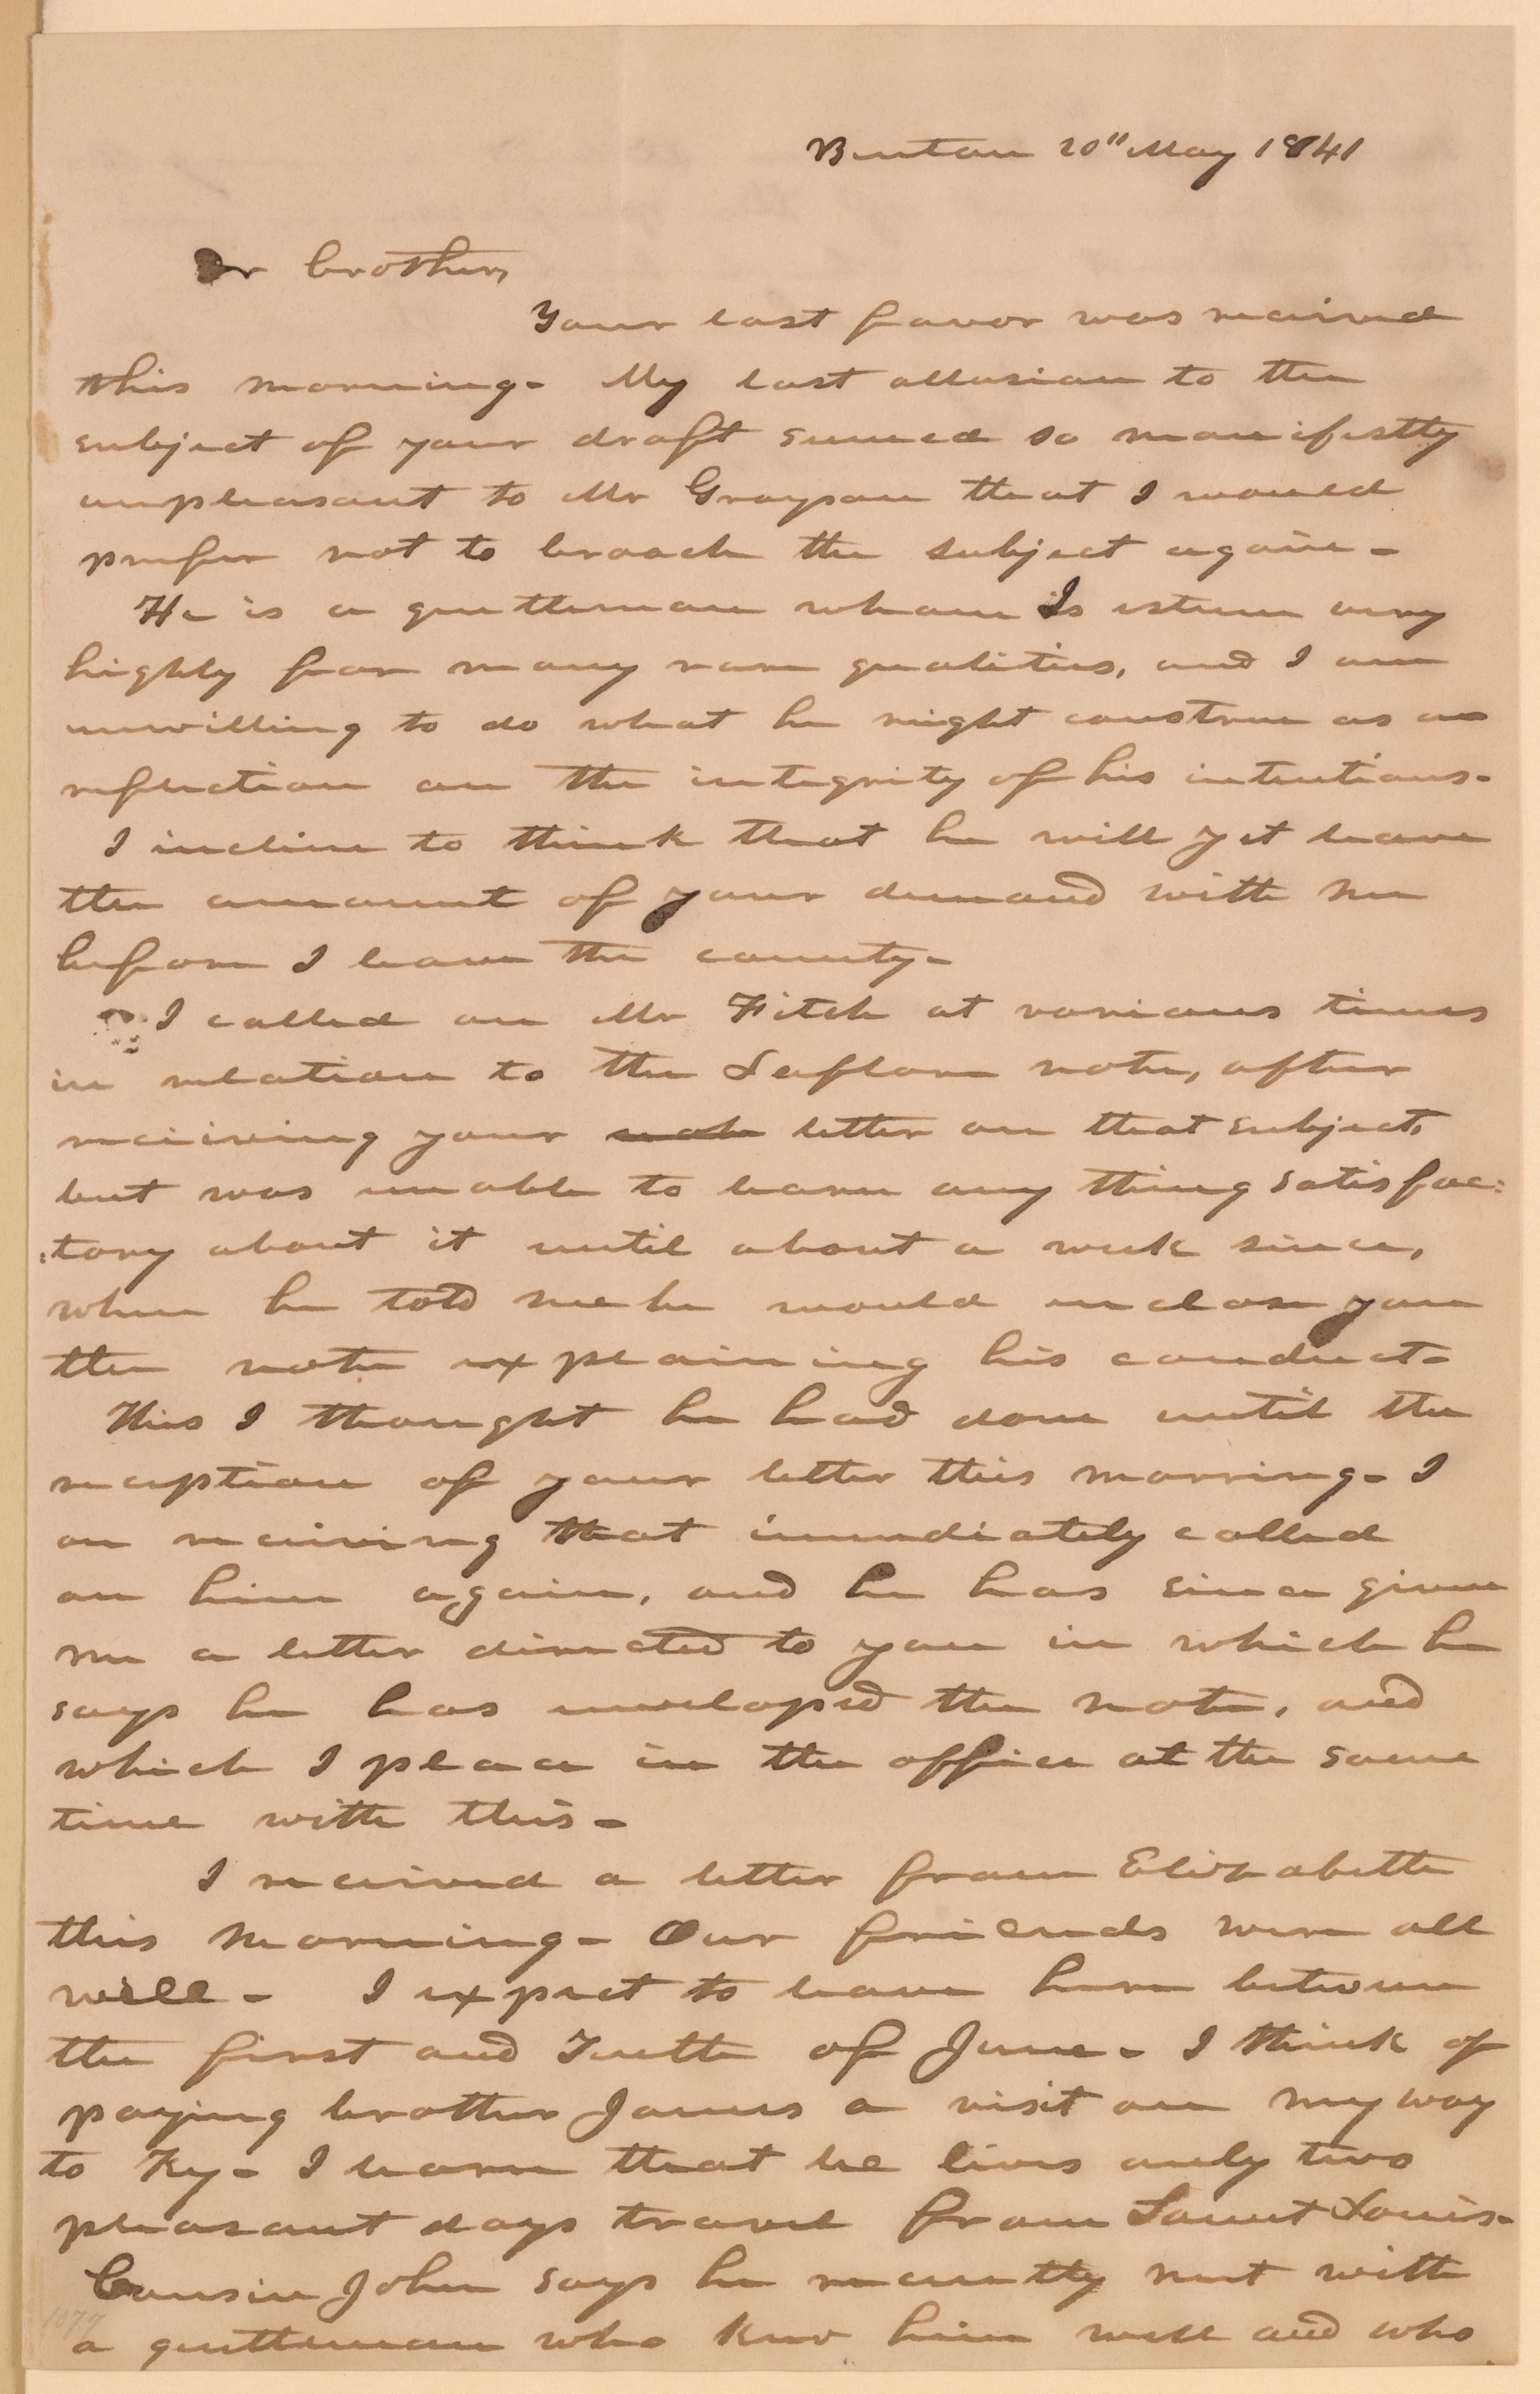 Benton 20" May 1841
Dr brother,
Your last favor was received
this morning- My last allusion to the
subject of your draft seemed so manifestly
unpleasant to Mr Grayson that I would
prefer not to broach the subject again-
He is a gentleman whom I esteem very
highly for many rare qualities, and I am
unwilling to do what he might construe as a
reflection on the integrity of his intentions-
I incline to think that he will yet leave
the amount of your demand with me
before I leave the county-
I called on Mr Fitch at various times
in relation to the Leflore note, after
receiving your note letter on that subject,
but was unable to learn any thing satisfac:
:tory about it until about a week since,
when he told me he would enclose you
the note explaining his conduct-
This I thought he had done until the
reception of your letter this morning- I
on receiving that immediately called
on him again, and he has since given
me a letter directed to you in which he
says he has enveloped the note, and
which I place in the office at the same
time with this-
I received a letter from Elizabeth
this morning- Our friends were all
well- I expect to leave here between
the first and Tenth of June- I think of
paying brother James a visit on my way
to Ky- I learn that he lives only two
pleasant days travel from Saint Louis-
Cousin John says he recently met with
a gentleman who knew him well and who
1077